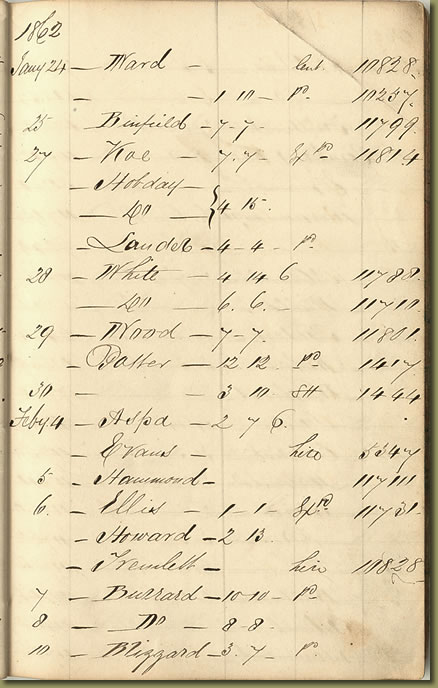 1862
Jany 24 — Ward — 10828
— 1 10 — Pd 10257
25 — Binfield — 7 - 7 - 11799
27 — Koe — 7 . 7 - Pd 11814
— Hobday —
— Do — } 4 15 .
— Lander — 4 - 4 - Pd
28 — White — 4 14 6 11788
— Do — 6 . 6 . — 11710
29 — Wood — 7 - 7 . 11801
— Potter — 12 12 . Pd 1417
30 — 3 10 1444
Feby 4 — Aspd — 2 7 6 .
— Evans — hire 5347
5 — Hammond — 11711
6 . — Ellis — 1 - 1 - 11731
— Howard — 2 13 .
— hire 10828
7 — Buzzard — 10 - 10 - Pd
8 — Do — 8 - 8 -
10 — Blizzard — 3 . 7 . Pd